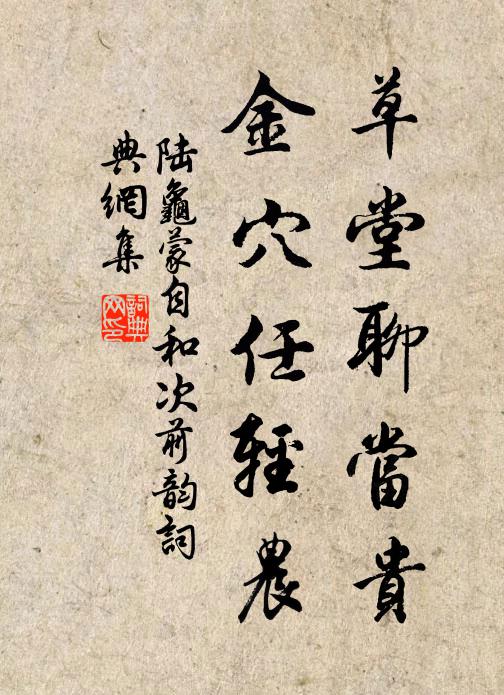 草堂聊當貴
金穴任輕農
陸龜蒙自和次前韵詞
典網集
詞典网印